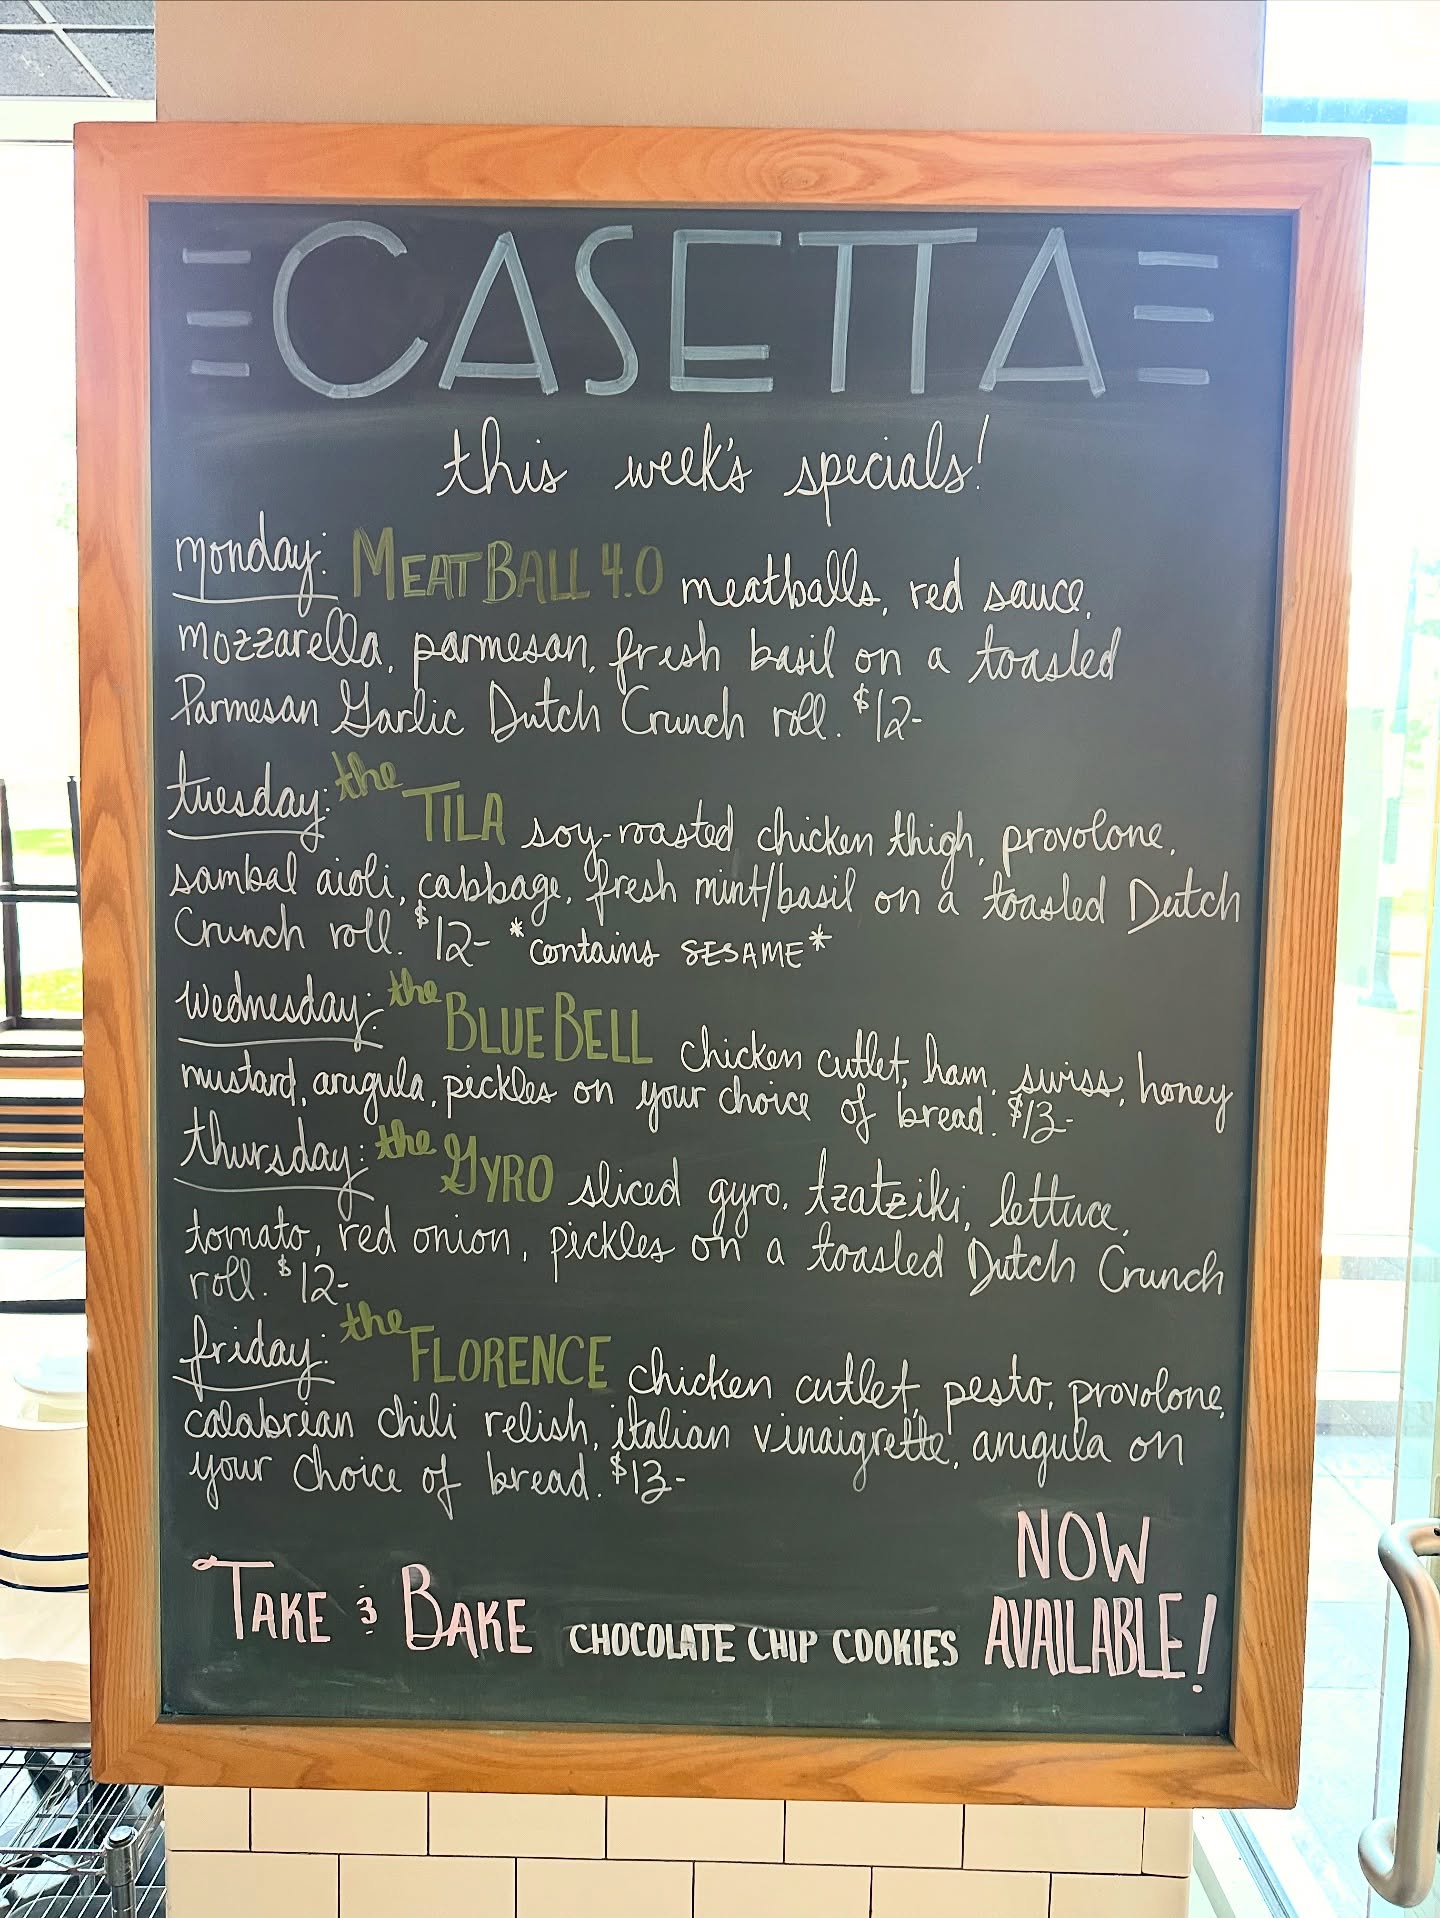 CASETTA
this week's specials!
monday: MEATBALL 4.0 meatballs, red sauce,
mozzarella, parmesan, fresh basil on a toasted
Parmesan Garlic Dutch Crunch roll. $12-
tuesday: the TILA soy-roasted chicken thigh, provolone,
sambal aioli, cabbage, fresh mint/basil on a toasted Dutch
Crunch roll. $12- *contains SESAME*
wednesday: the BLUE BELL chicken cutlet, ham, swiss, honey
mustard, arugula, pickles on your choice of bread. $13-
thursday: the GYRO sliced gyro, tzatziki, lettuce,
tomato, red onion, pickles on a toasted Dutch Crunch
roll. $12-
friday: the FLORENCE chicken cutlet, pesto, provolone,
calabrian chili relish, italian vinaigrette, arugula on
your choice of bread. $13-
TAKE & BAKE CHOCOLATE CHIP COOKIES NOW
AVAILABLE!